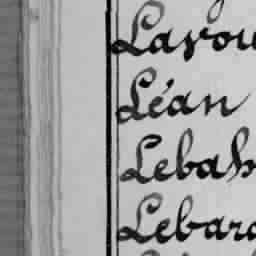 Lavou
Léan
Lebah
Lebar